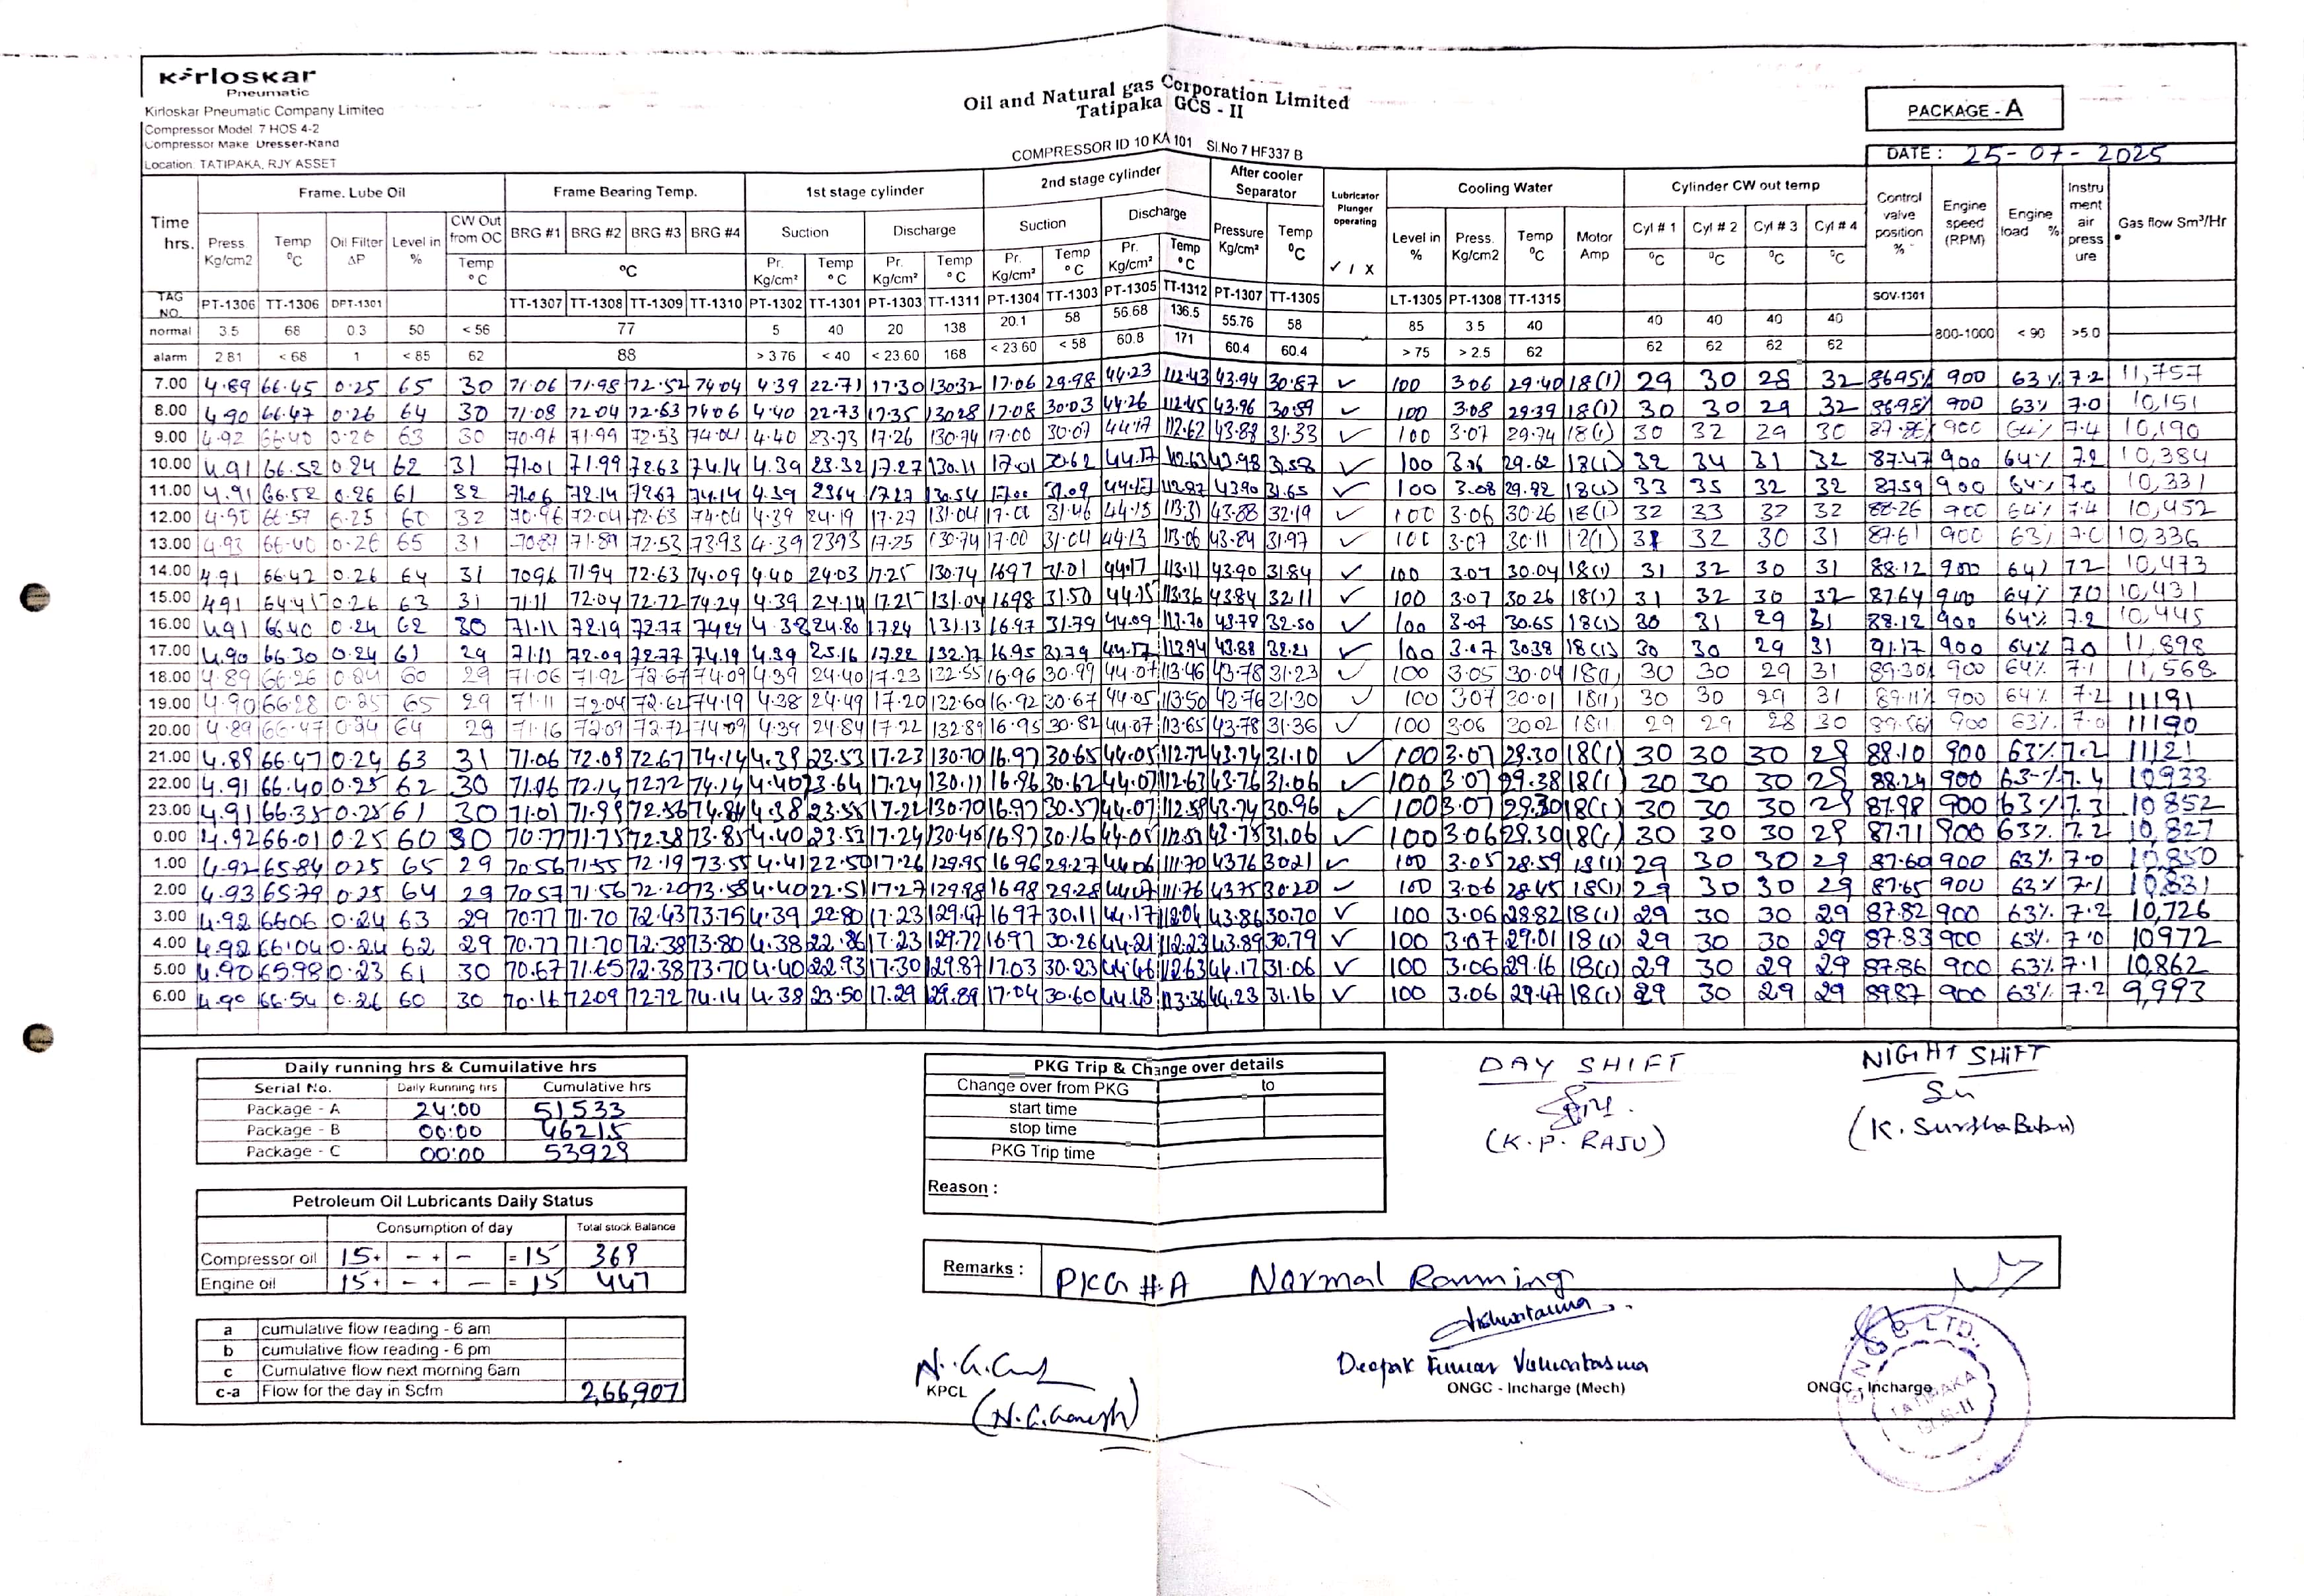 Kirloskar
Pneumatic
Kirloskar Pneumatic Company Limited
Compressor Model 7 HOS 4-2
Compressor Make Dresser-Rand
Location: TATIPAKA, RJY ASSET
Oil and Natural gas Corporation Limited
Tatipaka GCS - II
COMPRESSOR ID 10 KA 101 Sl.No 7 HF337 B
PACKAGE - A
DATE : 25-07-2025
Time hrs. Frame. Lube Oil Frame Bearing Temp. 1st stage cylinder 2nd stage cylinder After cooler Separator Lubricator Plunger operating Cooling Water Cylinder CW out temp Control valve position % Engine speed (RPM) Engine load % Instru ment air press ure Gas flow Sm³/Hr
Press Kg/cm2 Temp ºC Oil Filter ΔP Level in % CW Out from OC BRG #1 BRG #2 BRG #3 BRG #4 Suction Discharge Suction Discharge Pressure Kg/cm² Temp ºC Level in % Press. Kg/cm2 Temp ºC Motor Amp Cyl # 1 Cyl # 2 Cyl # 3 Cyl # 4
Temp ºC ºC Pr. Kg/cm² Temp ºC Pr. Kg/cm² Temp ºC Pr. Kg/cm² Temp ºC Pr. Kg/cm² Temp ºC ✓ / X ºC ºC ºC ºC
TAG NO. PT-1306 TT-1306 DPT-1301 TT-1307 TT-1308 TT-1309 TT-1310 PT-1302 TT-1301 PT-1303 TT-1311 PT-1304 TT-1303 PT-1305 TT-1312 PT-1307 TT-1305 LT-1305 PT-1308 TT-1315 SOV-1301
normal 3.5 68 0.3 50 < 56 77 5 40 20 138 20.1 58 56.68 136.5 55.76 58 85 3.5 40 40 40 40 40 800-1000 < 90 >5.0
alarm 2.81 < 68 1 < 85 62 88 > 3.76 < 40 < 23.60 168 < 23.60 < 58 60.8 171 60.4 60.4 > 75 > 2.5 62 62 62 62 62
7.00 4.89 66.45 0.25 65 30 71.06 71.98 72.52 74.04 4.39 22.71 17.30 130.32 17.06 29.98 44.23 112.43 43.94 30.87 ✓ 100 3.06 29.40 18(1) 29 30 28 32 86.95% 900 63% 7.2 11,757
8.00 4.90 66.47 0.26 64 30 71.08 72.04 72.63 74.06 4.40 22.73 17.35 130.28 17.08 30.03 44.26 112.45 43.96 30.89 ✓ 100 3.08 29.39 18(1) 30 30 29 32 86.98% 900 63% 7.0 10,151
9.00 4.92 66.40 0.26 63 30 70.96 71.99 72.53 74.04 4.40 23.73 17.26 130.74 17.00 30.07 44.17 112.62 43.88 31.33 ✓ 100 3.07 29.74 18(1) 30 32 29 30 87.86% 900 64% 7.4 10,190
10.00 4.91 66.52 0.24 62 31 71.01 71.99 72.63 74.14 4.39 23.32 17.27 130.11 17.01 30.62 44.17 112.63 43.98 31.58 ✓ 100 3.06 29.62 18(1) 32 34 31 32 87.47 900 64% 7.2 10,384
11.00 4.91 66.52 0.26 61 32 71.06 72.14 72.67 74.14 4.39 23.64 17.27 130.54 17.00 31.09 44.17 112.87 43.90 31.65 ✓ 100 3.08 29.92 18(1) 33 35 32 32 87.59 900 64% 7.0 10,331
12.00 4.90 66.57 0.25 60 32 70.96 72.04 72.63 74.04 4.39 24.19 17.27 131.04 17.01 31.46 44.15 113.31 43.88 32.19 ✓ 100 3.06 30.26 18(1) 32 33 32 32 88.26 900 64% 7.4 10,452
13.00 4.93 66.40 0.26 65 31 70.87 71.89 72.53 73.93 4.39 23.93 17.25 130.74 17.00 31.04 44.13 113.06 43.84 31.97 ✓ 100 3.07 30.11 18(1) 31 32 30 31 87.61 900 63% 7.0 10,336
14.00 4.91 66.42 0.26 64 31 70.96 71.94 72.63 74.09 4.40 24.03 17.25 130.74 16.97 31.01 44.17 113.11 43.90 31.84 ✓ 100 3.07 30.04 18(1) 31 32 30 31 88.12 900 64% 7.2 10,473
15.00 4.91 64.41 0.26 63 31 71.11 72.04 72.72 74.24 4.39 24.14 17.25 131.04 16.98 31.50 44.15 113.36 43.84 32.11 ✓ 100 3.07 30.26 18(1) 31 32 30 32 87.64 900 64% 7.0 10,431
16.00 4.91 66.40 0.24 62 30 71.11 72.19 72.77 74.24 4.38 24.80 17.24 131.13 16.97 31.79 44.09 113.70 43.78 32.50 ✓ 100 3.07 30.65 18(1) 30 31 29 31 88.12 900 64% 7.2 10,445
17.00 4.90 66.30 0.24 61 29 71.11 72.09 72.77 74.19 4.39 25.16 17.22 132.17 16.95 31.79 44.17 113.94 43.88 32.21 ✓ 100 3.07 30.38 18(1) 30 30 29 31 91.17 900 64% 7.0 11,898
18.00 4.89 66.26 0.24 60 29 71.06 71.92 72.67 74.09 4.39 24.40 17.23 132.55 16.96 30.99 44.07 113.46 43.78 31.23 ✓ 100 3.05 30.04 18(1) 30 30 29 31 89.30% 900 64% 7.1 11,568
19.00 4.90 66.28 0.25 65 29 71.11 72.04 72.62 74.19 4.38 24.49 17.20 132.60 16.92 30.67 44.05 113.50 43.76 31.30 ✓ 100 3.07 30.01 18(1) 30 30 29 31 89.11% 900 64% 7.2 11191
20.00 4.89 66.47 0.24 64 29 71.16 72.09 72.72 74.09 4.39 24.84 17.22 132.89 16.95 30.82 44.07 113.65 43.78 31.36 ✓ 100 3.06 30.02 18(1) 29 29 28 30 89.56% 900 63% 7.0 11190
21.00 4.89 66.47 0.24 63 31 71.06 72.09 72.67 74.14 4.39 23.53 17.23 130.70 16.97 30.65 44.05 112.72 43.74 31.10 ✓ 100 3.07 29.30 18(1) 30 30 30 29 88.10 900 63% 7.2 11121
22.00 4.91 66.40 0.25 62 30 71.06 72.14 72.72 74.14 4.40 23.64 17.24 130.11 16.96 30.62 44.07 112.63 43.76 31.06 ✓ 100 3.07 29.38 18(1) 30 30 30 29 88.24 900 63% 7.4 10933
23.00 4.91 66.35 0.25 61 30 71.01 71.99 72.56 74.84 4.38 23.58 17.22 130.70 16.97 30.57 44.07 112.58 43.74 30.96 ✓ 100 3.07 29.30 18(1) 30 30 30 29 87.98 900 63% 7.3 10852
0.00 4.92 66.01 0.25 60 30 70.77 71.75 72.38 73.85 4.40 23.53 17.24 130.45 16.97 30.16 44.05 112.53 43.75 31.06 ✓ 100 3.06 29.30 18(1) 30 30 30 29 87.71 900 63% 7.2 10,827
1.00 4.92 65.84 0.25 65 29 70.56 71.55 72.19 73.55 4.41 22.50 17.26 129.95 16.96 29.27 44.06 111.70 43.76 30.21 ✓ 100 3.05 28.59 18(1) 29 30 30 29 87.60 900 63% 7.0 10,850
2.00 4.93 65.79 0.25 64 29 70.57 71.56 72.20 73.58 4.40 22.51 17.27 129.98 16.98 29.28 44.07 111.76 43.75 30.20 ✓ 100 3.06 28.45 18(1) 29 30 30 29 87.65 900 63% 7.1 10,831
3.00 4.92 66.06 0.24 63 29 70.77 71.70 72.43 73.75 4.39 22.80 17.23 129.47 16.97 30.11 44.17 112.04 43.86 30.70 ✓ 100 3.06 28.82 18(1) 29 30 30 29 87.82 900 63% 7.2 10,726
4.00 4.92 66.04 0.24 62 29 70.77 71.70 72.38 73.80 4.38 22.86 17.23 129.72 16.97 30.26 44.21 112.23 43.89 30.79 ✓ 100 3.07 29.01 18(1) 29 30 30 29 87.83 900 63% 7.0 10972
5.00 4.90 65.98 0.23 61 30 70.67 71.65 72.38 73.70 4.40 22.93 17.30 129.87 17.03 30.23 44.46 112.63 44.17 31.06 ✓ 100 3.06 29.16 18(1) 29 30 29 29 87.86 900 63% 7.1 10,862
6.00 4.90 66.54 0.26 60 30 70.16 72.09 72.72 74.14 4.38 23.50 17.29 129.89 17.04 30.60 44.48 113.36 44.23 31.16 ✓ 100 3.06 29.47 18(1) 29 30 29 29 89.87 900 63% 7.2 9,993
Daily running hrs & Cumuilative hrs
Serial No. Daily Running hrs Cumulative hrs
Package - A 24:00 51533
Package - B 00:00 46215
Package - C 00:00 53929
Petroleum Oil Lubricants Daily Status
Consumption of day Total stock Balance
Compressor oil 15+ - + - = 15 369
Engine oil 15+ - + - = 15 447
a cumulative flow reading - 6 am
b cumulative flow reading - 6 pm
c Cumulative flow next morning 6am
c-a Flow for the day in Scfm 2,66,907
PKG Trip & Change over details
Change over from PKG to
start time
stop time
PKG Trip time
Reason :
DAY SHIFT
(K.P. RAJU)
NIGHT SHIFT
(K. Suresha Babu)
Remarks : PKG #A Normal Running
KPCL
(N.G.Ganesh)
Deepak Kumar
ONGC - Incharge (Mech)
ONGC - Incharge
ONGC LTD.
TATIPAKA
GCS-II